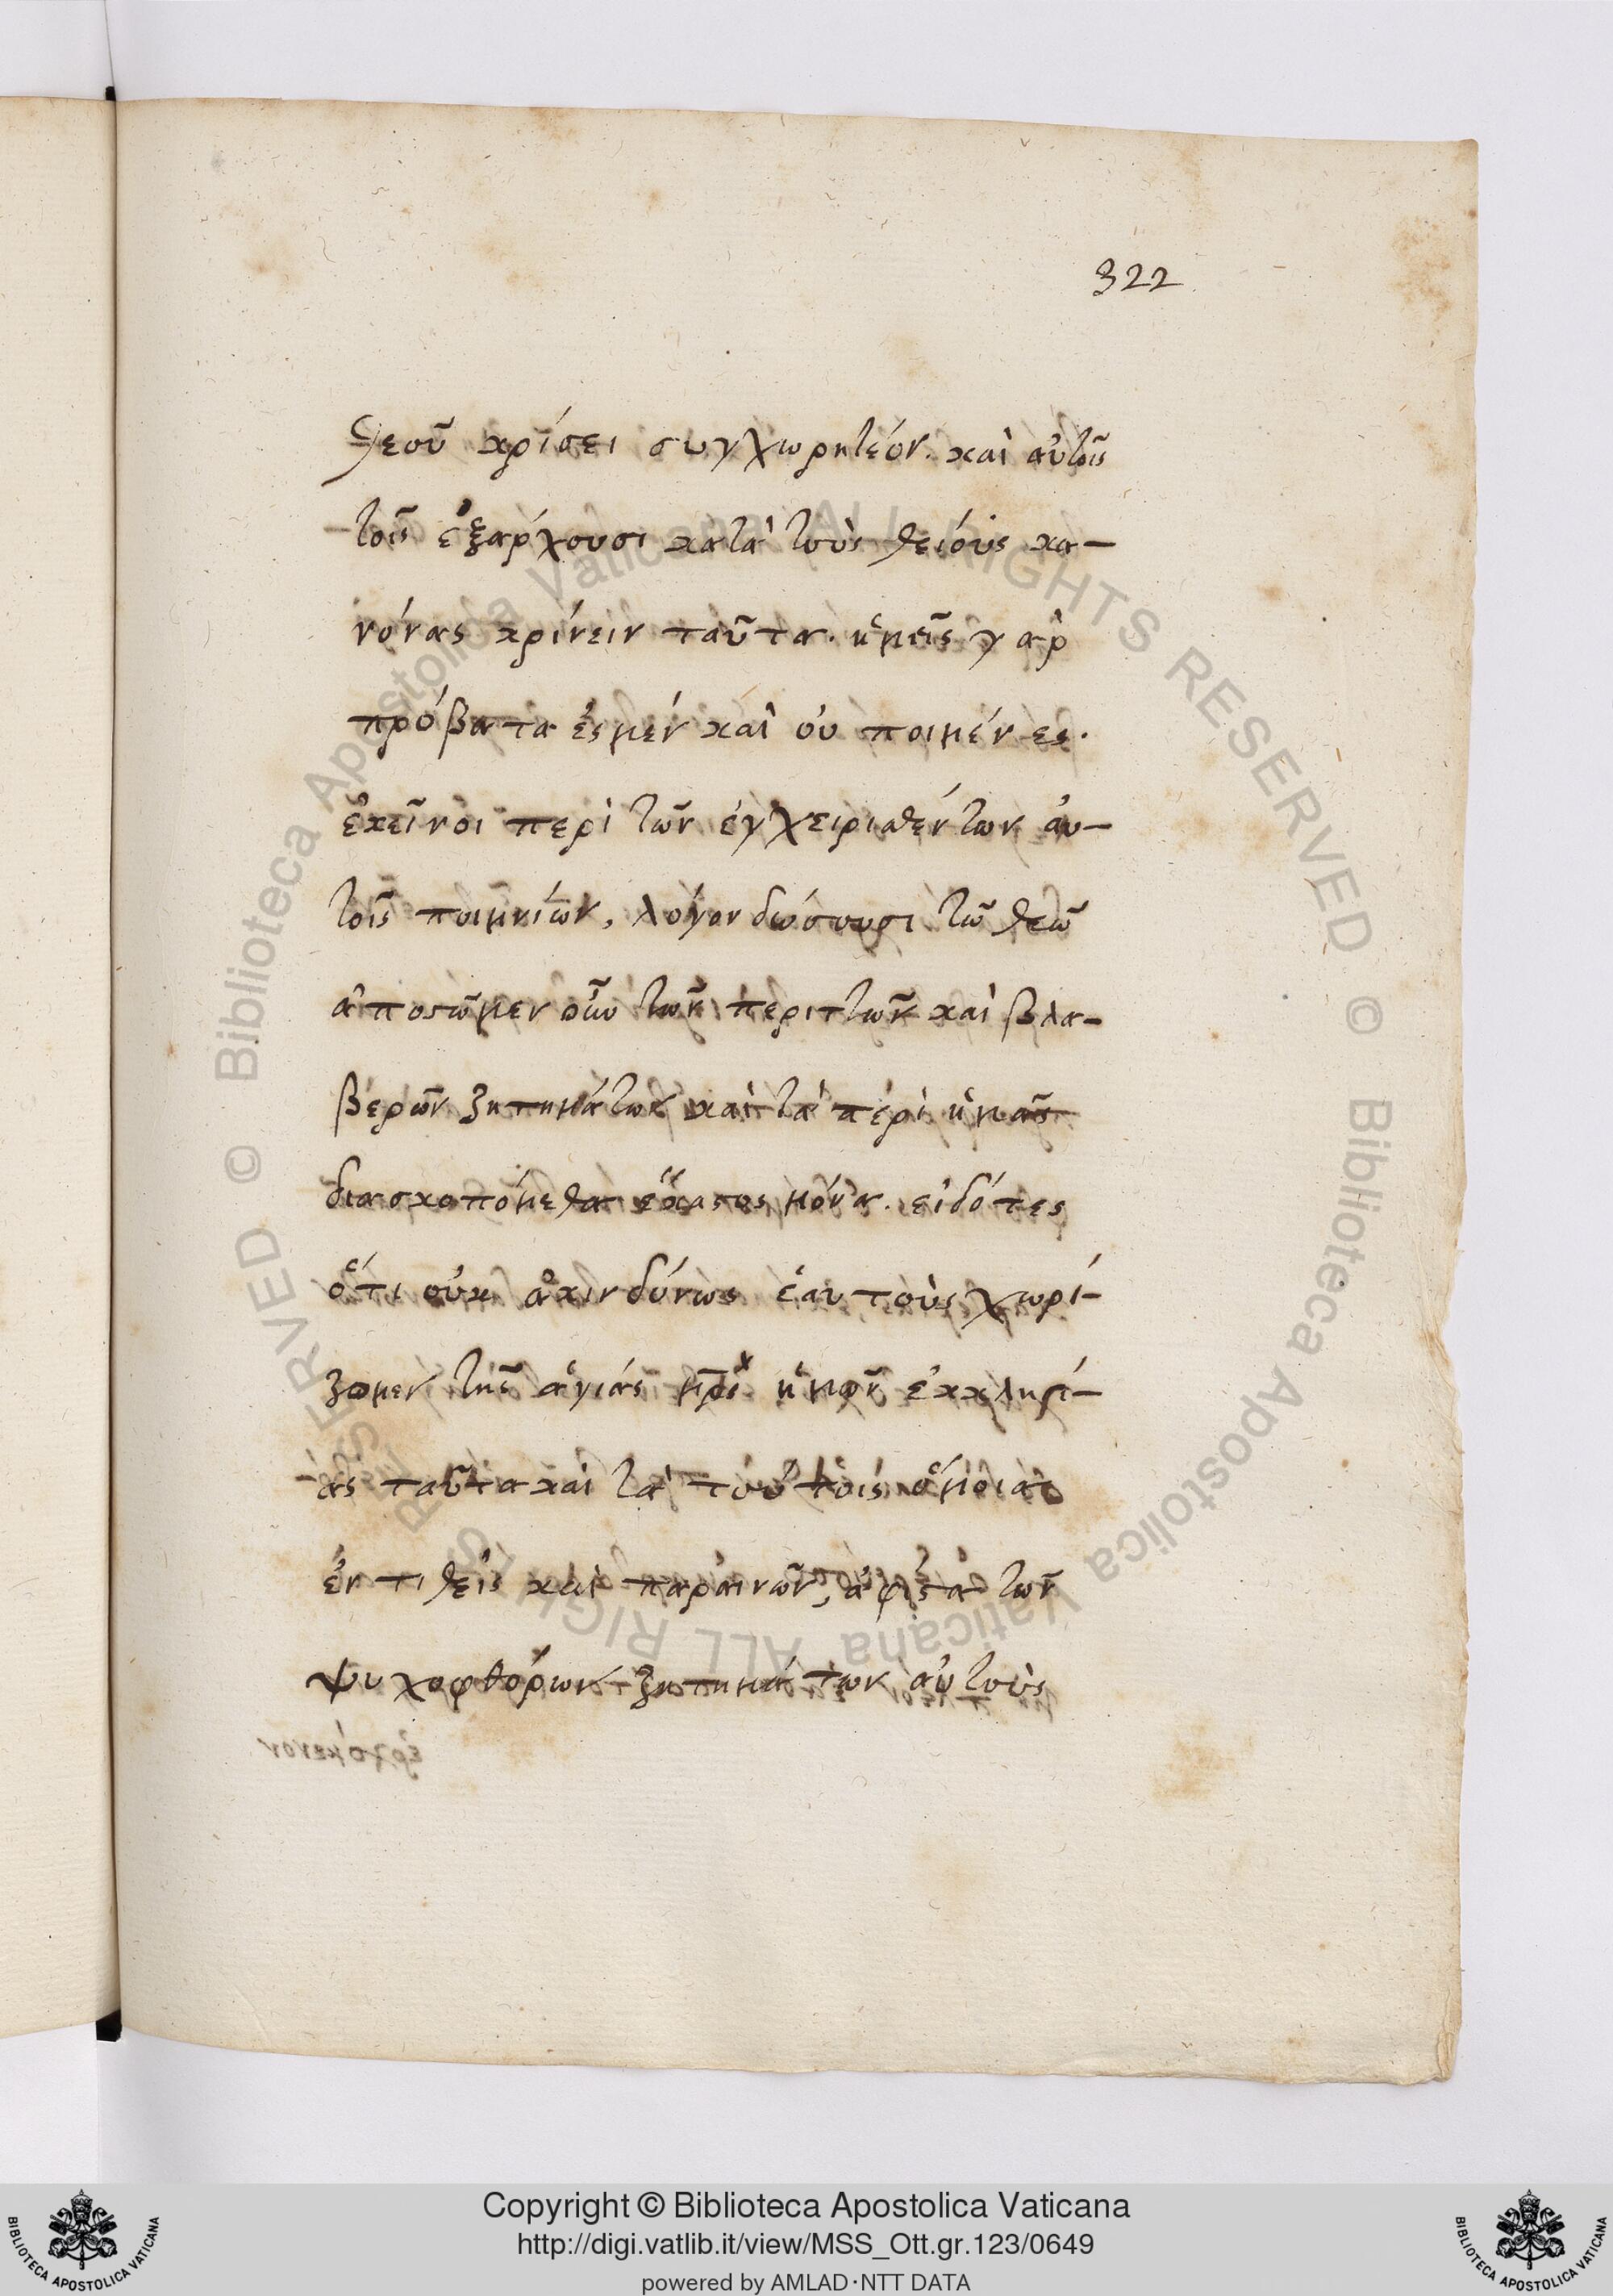 322
θεοῦ κρίσει συγχωρητέον. καὶ αὐτοῖς
τοῖς ἐξάρχουσι κατὰ τοὺς θείους κα-
νόνας κρίνειν ταῦτα. ἡμεῖς γὰρ
πρόβατα ἐσμὲν καὶ οὐ ποιμένες.
ἐκεῖνοι περὶ τῶν ἐγχειρισθέντων αὐ-
τοῖς ποιμνίων, λόγον δώσουσι τῶ θεῶ
ἀποστῶμεν οὖν τῶν περιττῶν καὶ βλα-
βερῶν ζητημάτων καὶ τὰ περὶ ἡμᾶς
διασκοπόμεθα ἕκαστος μόνα. εἰδότες
ὅτι οὐκ ἀκινδύνως ἑαυτοὺς χωρί-
ζομεν τῆς ἁγίας μρ̅ι ἡμῶν ἐκκλησί-
ας ταῦτα καὶ τὰ τούτοις ὅμοια
ἐντιθεὶς καὶ παραινῶν, ἀφίστα τῶν
ψυχοφθόρων ζητημάτων αὐτοὺς
ἐρχόμενον
Copyright © Biblioteca Apostolica Vaticana
http://digi.vatlib.it/view/MSS_Ott.gr.123/0649
powered by AMLAD·NTT DATA
BIBLIOTECA APOSTOLICA VATICANA
BIBLIOTECA APOSTOLICA VATICANA
© Biblioteca Apostolica Vaticana ALL RIGHTS RESERVED © Biblioteca Apostolica Vaticana ALL RIGHTS RESERVED